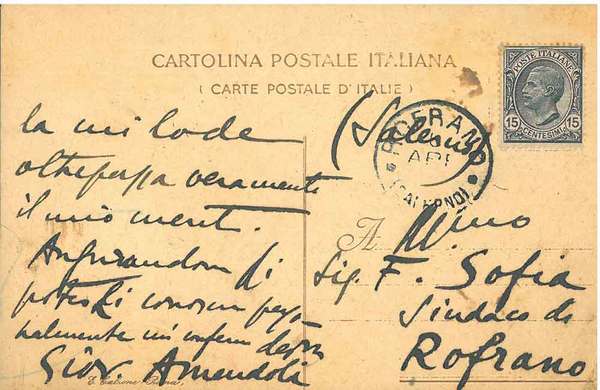 CARTOLINA POSTALE ITALIANA
( CARTE POSTALE D'ITALIE )
POSTE ITALIANE
15 15
CENTESIMI
ROFRANO
(SALERNO)
la mi lode
oltrepassa veramente
il mio merit.
Augurandom di
poterLi conoscer perso
nalmente mi confermo
Giov. Amendola
(Salerno)
A
Ill.mo
Sig. F. Sofia
Sindaco di
Rofrano